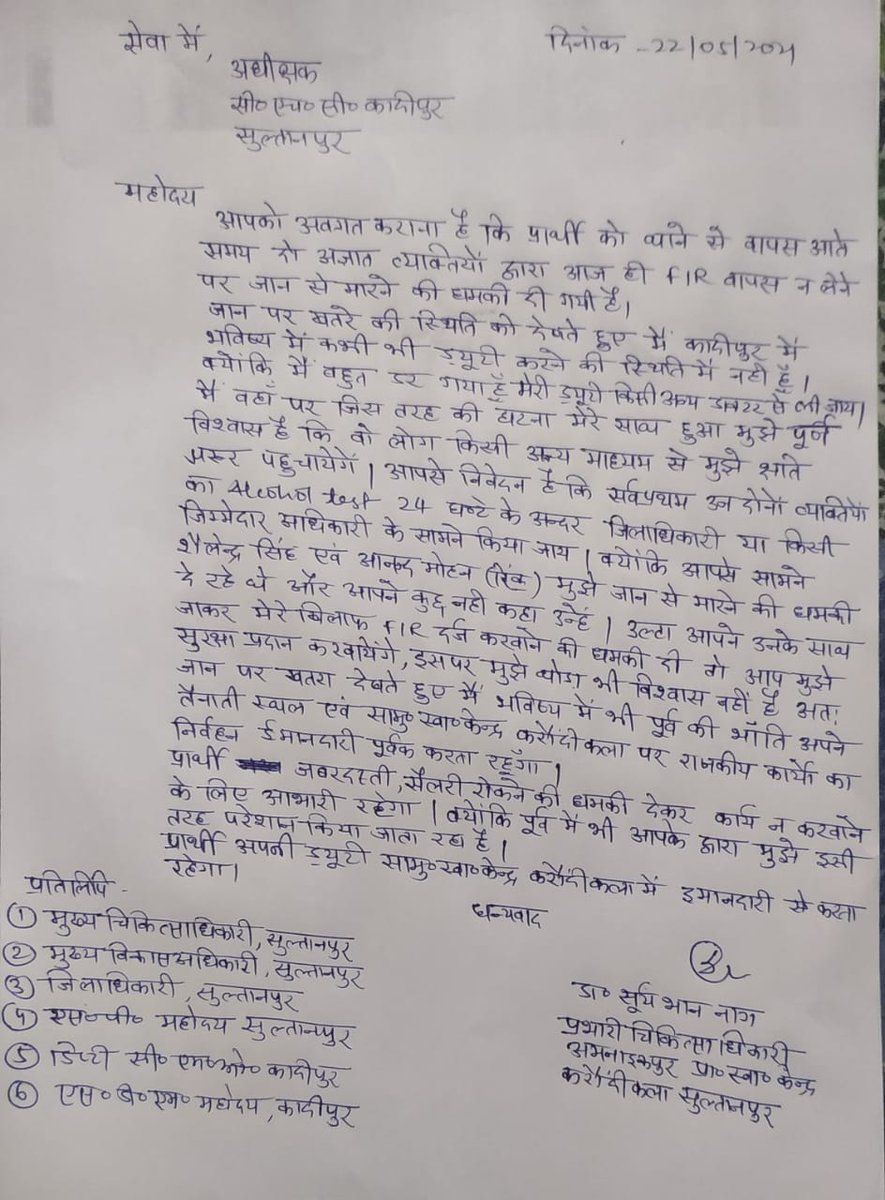 सेवा में,
दिनांक - 22/05/2021
अधीक्षक
सी० एच० सी० कादीपुर
सुल्तानपुर
महोदय
आपको अवगत कराना है कि प्रार्थी को थाने से वापस आते
समय दो अज्ञात व्यक्तियों द्वारा आज ही FIR वापस न लेने
पर जान से मारने की धमकी दी गयी है।
जान पर खतरे की स्थिति को देखते हुए मैं कादीपुर में
भविष्य में कभी भी ड्यूटी करने की स्थिति में नही हूँ।
क्योंकि मैं बहुत डर गया हूँ मेरी ड्यूटी किसी अन्य डाक्टर से ली जाय।
मैं वहाँ पर जिस तरह की घटना मेरे साथ हुआ मुझे पूर्ण
विश्वास है कि वो लोग किसी अन्य माध्यम से मुझे क्षति
जरूर पहुचायेगें। आपसे निवेदन है कि सर्वप्रथम उन दोनों व्यक्तियों
का Alcohol test 24 घण्टे के अन्दर जिलाधिकारी या किसी
जिम्मेदार अधिकारी के सामने किया जाय। क्योंकि आपके सामने
शैलेन्द्र सिंह एवं आनन्द मोहन (रिंकू) मुझे जान से मारने की धमकी
दे रहे थे और आपने कुछ नही कहा उन्हें। उल्टा आपने उनके साथ
जाकर मेरे खिलाफ FIR दर्ज करवाने की धमकी दी तो आप मुझे
सुरक्षा प्रदान करवायेंगे, इस पर मुझे थोडा भी विश्वास नहीं है अतः
जान पर खतरा देखते हुए मैं भविष्य में भी पूर्व की भाँति अपने
तैनाती स्थल एवं सामु० स्वा० केन्द्र करौंदीकला पर राजकीय कार्यों का
निर्वहन ईमानदारी पूर्वक करता रहूँगा।
प्रार्थी जबरदस्ती, सैलरी रोकने की धमकी देकर कार्य न करवाने
के लिए आभारी रहेगा। क्योंकि पूर्व में भी आपके द्वारा मुझे इसी
तरह परेशान किया जाता रहा है।
प्रार्थी अपनी ड्यूटी सामु० स्वा० केन्द्र करौंदीकला में इमानदारी से करता
रहेगा।
धन्यवाद
प्रतिलिपि -
① मुख्य चिकित्साधिकारी, सुल्तानपुर
② मुख्य विकास अधिकारी, सुल्तानपुर
③ जिलाधिकारी, सुल्तानपुर
④ एस० पी० महोदय सुल्तानपुर
⑤ डिप्टी सी० एम० ओ० कादीपुर
⑥ एस० डी० एम० महोदय, कादीपुर
डा० सूर्य भान नाग
प्रभारी चिकित्साधिकारी
अमनाइकपुर प्रा० स्वा० केन्द्र
करौंदीकला सुल्तानपुर